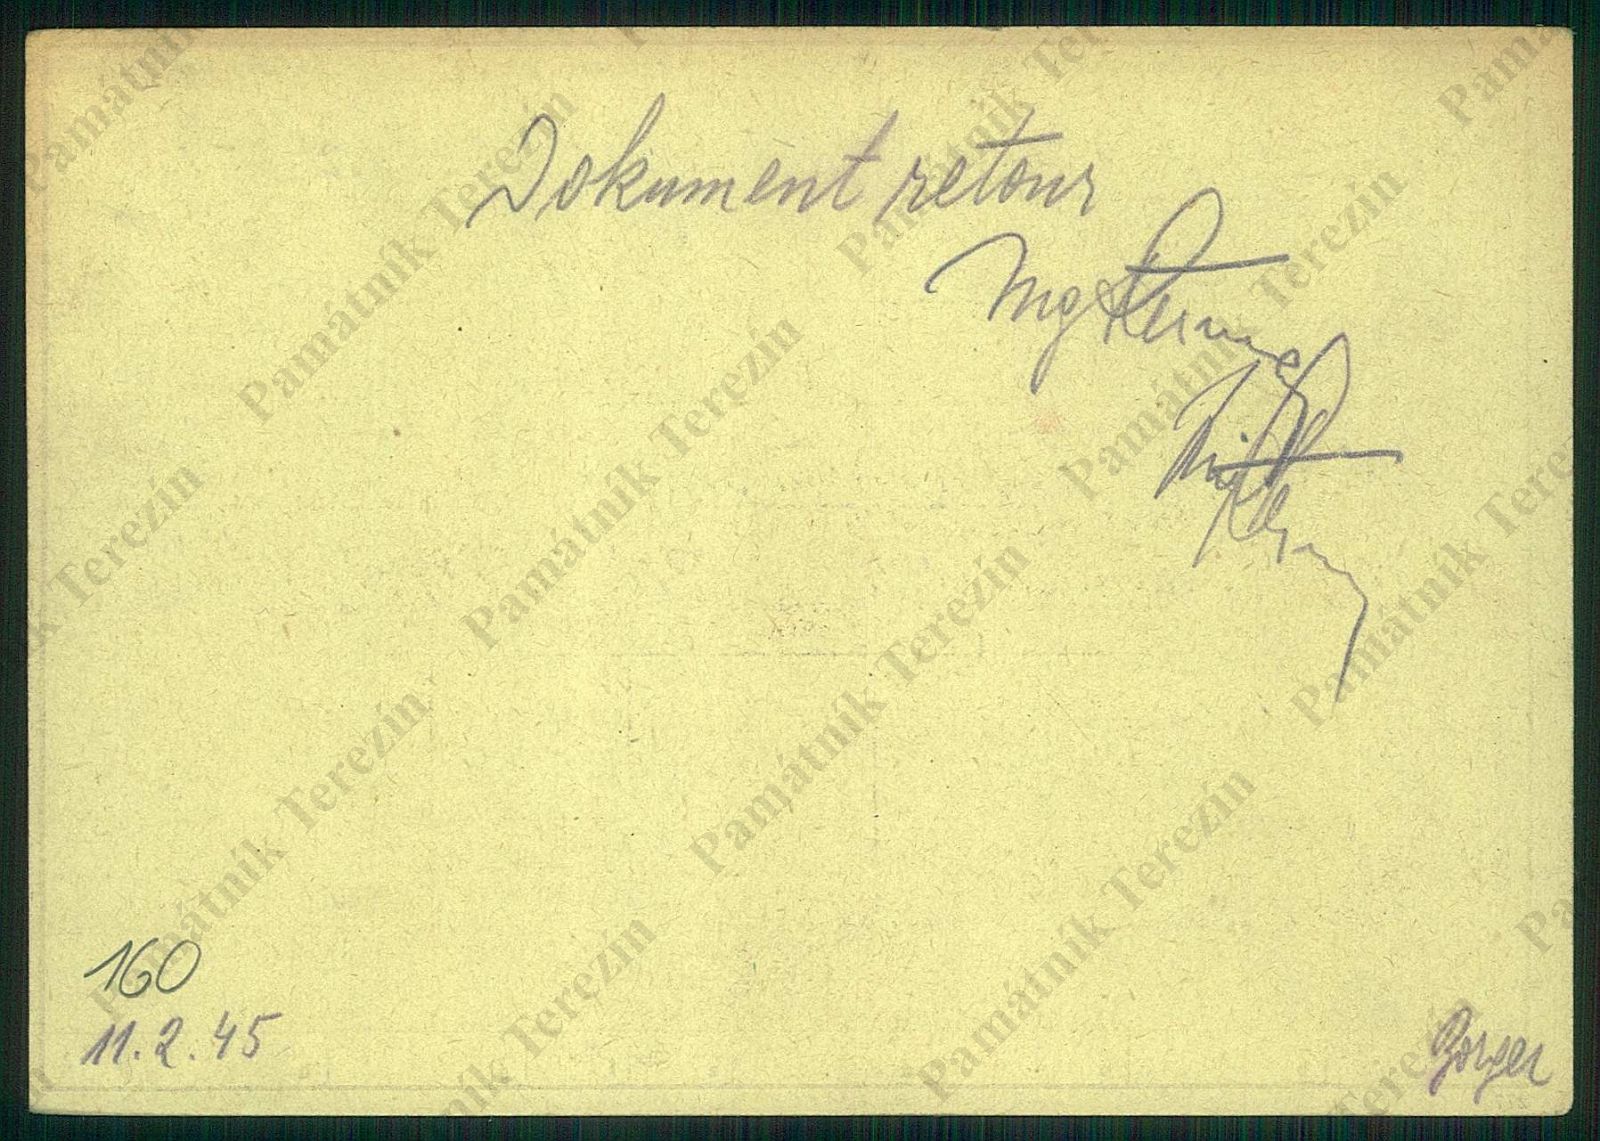 Dokument retour
Ing
160
11.2.45
Gorger
Památník Terezín